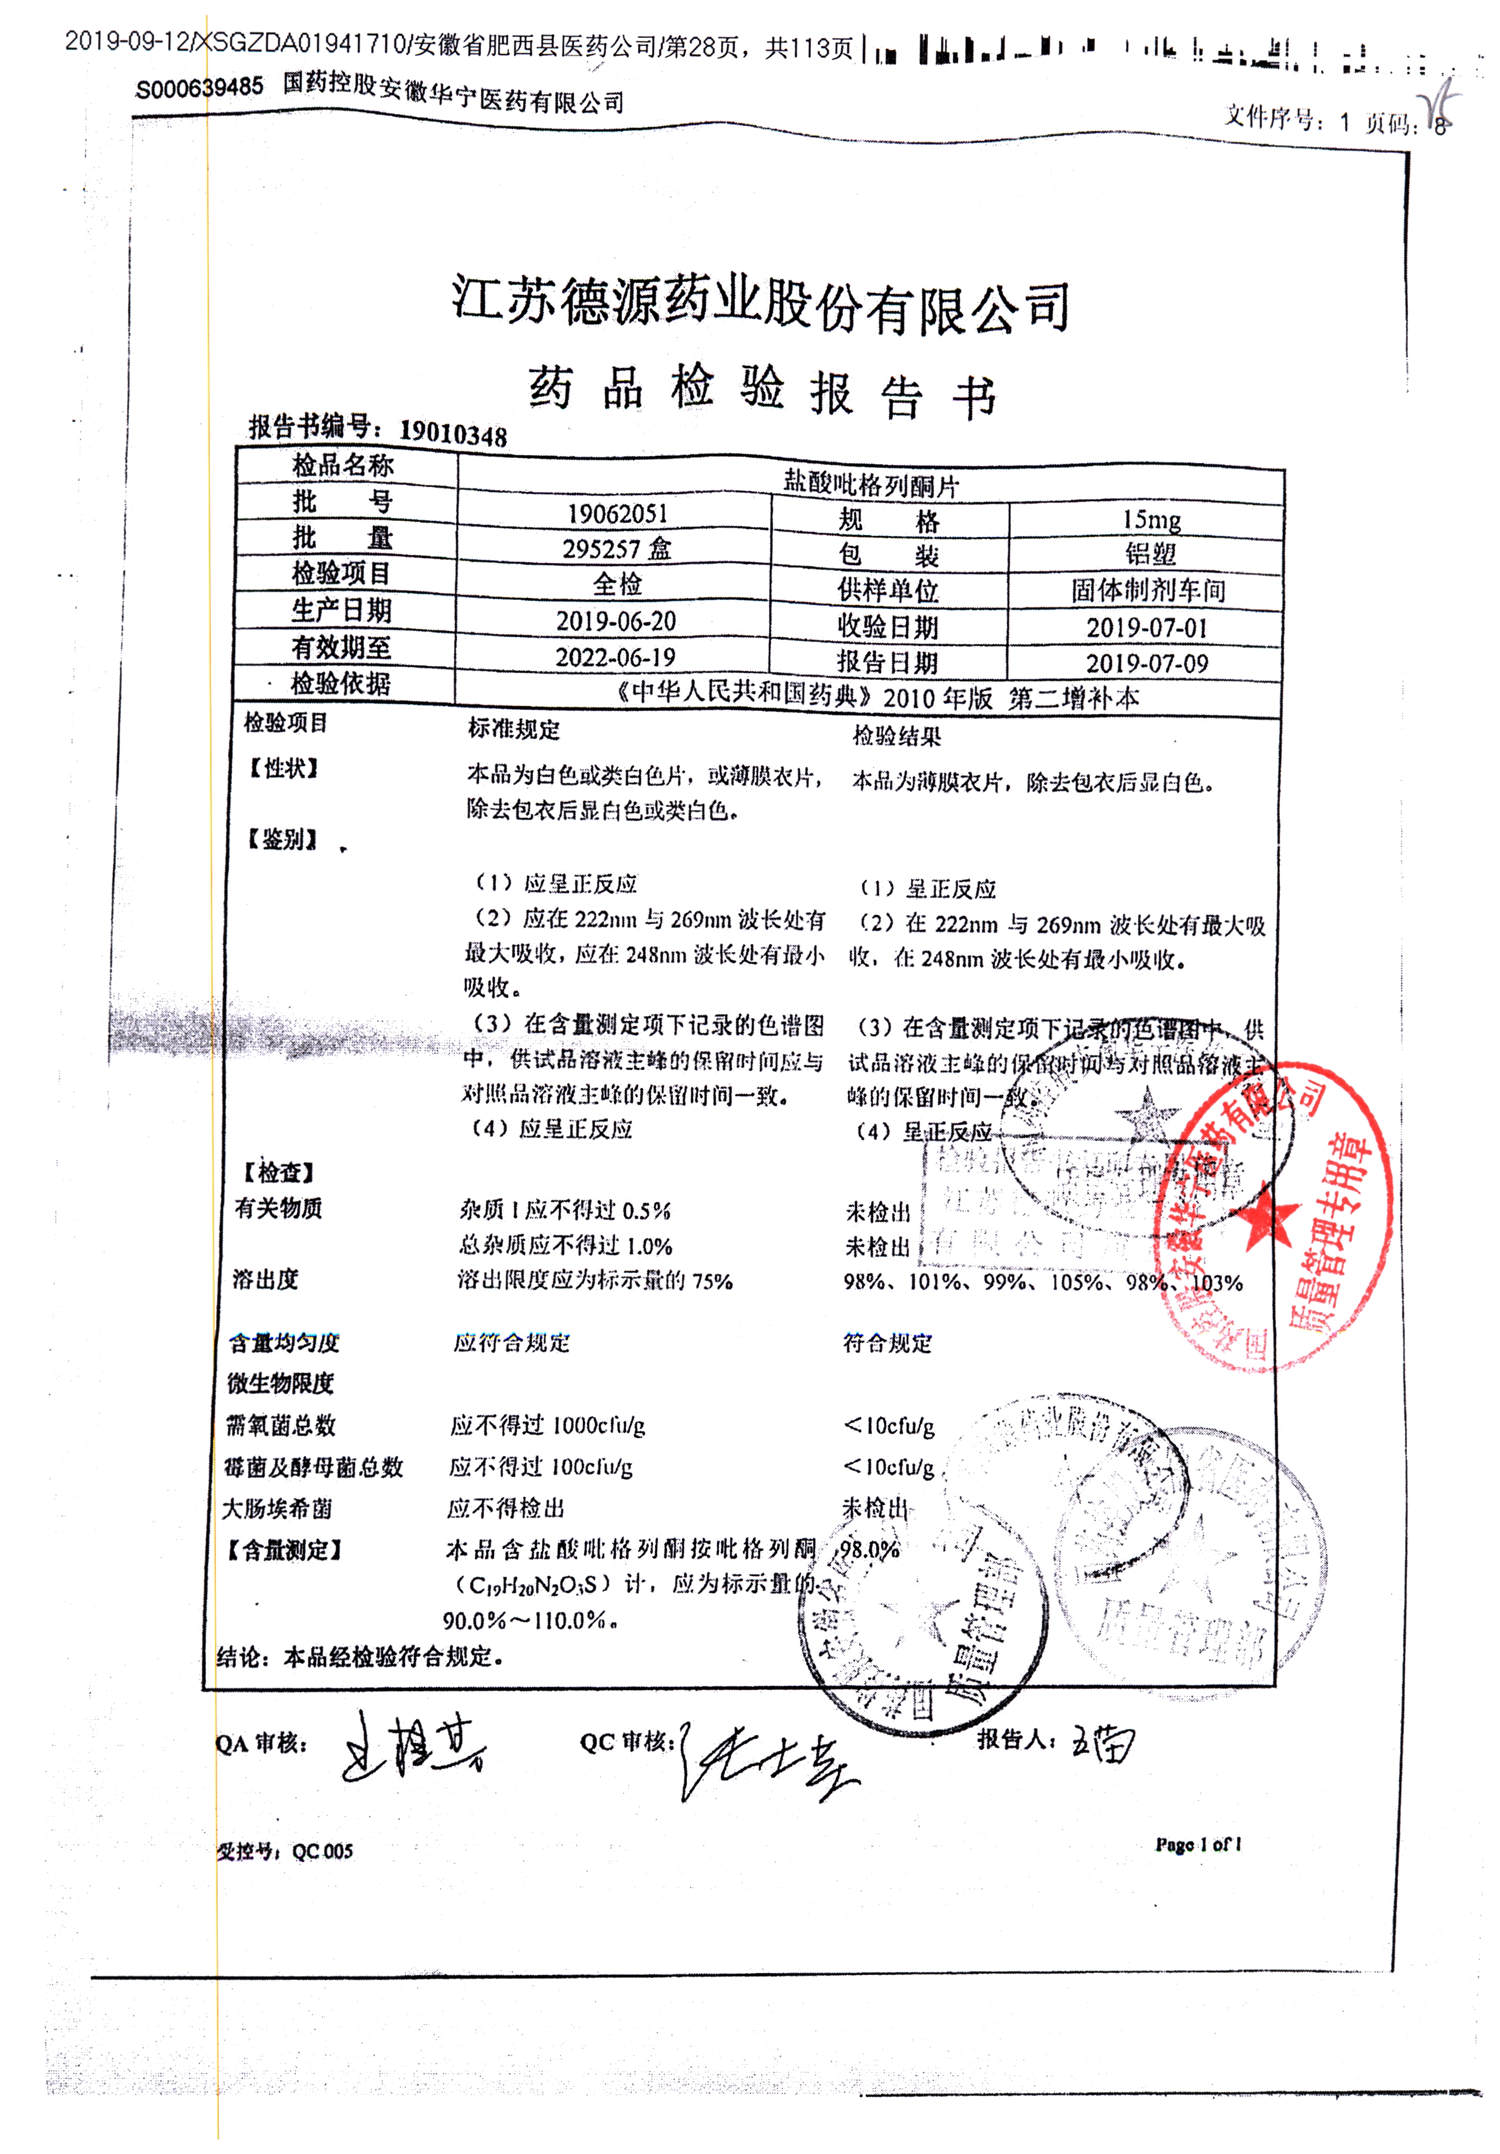 2019-09-12/XSGZDA01941710/安徽省肥西县医药公司/第28页，共113页
S000639485 国药控股安徽华宁医药有限公司
文件序号：1 页码：8
江苏德源药业股份有限公司
药品检验报告书
报告书编号：19010348
检品名称 盐酸吡格列酮片
批 号 19062051 规 格 15mg
批 量 295257 盒 包 装 铝塑
检验项目 全检 供样单位 固体制剂车间
生产日期 2019-06-20 收验日期 2019-07-01
有效期至 2022-06-19 报告日期 2019-07-09
检验依据 《中华人民共和国药典》2010 年版 第二增补本
检验项目 标准规定 检验结果
【性状】 本品为白色或类白色片，或薄膜衣片， 本品为薄膜衣片，除去包衣后显白色。
除去包衣后显白色或类白色。
【鉴别】
（1）应呈正反应 （1）呈正反应
（2）应在 222nm 与 269nm 波长处有 （2）在 222nm 与 269nm 波长处有最大吸
最大吸收，应在 248nm 波长处有最小 收，在 248nm 波长处有最小吸收。
吸收。
（3）在含量测定项下记录的色谱图 （3）在含量测定项下记录的色谱图中，供
中，供试品溶液主峰的保留时间应与 试品溶液主峰的保留时间与对照品溶液主
对照品溶液主峰的保留时间一致。 峰的保留时间一致。
（4）应呈正反应 （4）呈正反应
【检查】
有关物质 杂质 I 应不得过 0.5% 未检出
总杂质应不得过 1.0% 未检出
溶出度 溶出限度应为标示量的 75% 98%、101%、99%、105%、98%、103%
含量均匀度 应符合规定 符合规定
微生物限度
需氧菌总数 应不得过 1000cfu/g ＜10cfu/g
霉菌及酵母菌总数 应不得过 100cfu/g ＜10cfu/g
大肠埃希菌 应不得检出 未检出
【含量测定】 本品含盐酸吡格列酮按吡格列酮 98.0%
（C₁₉H₂₀N₂O₃S）计，应为标示量的
90.0%～110.0%。
结论：本品经检验符合规定。
国药控股安徽华宁医药有限公司
质量管理专用章
质量管理部
质量管理部
QA 审核： QC 审核： 报告人：
受控号：QC 005
Page 1 of 1